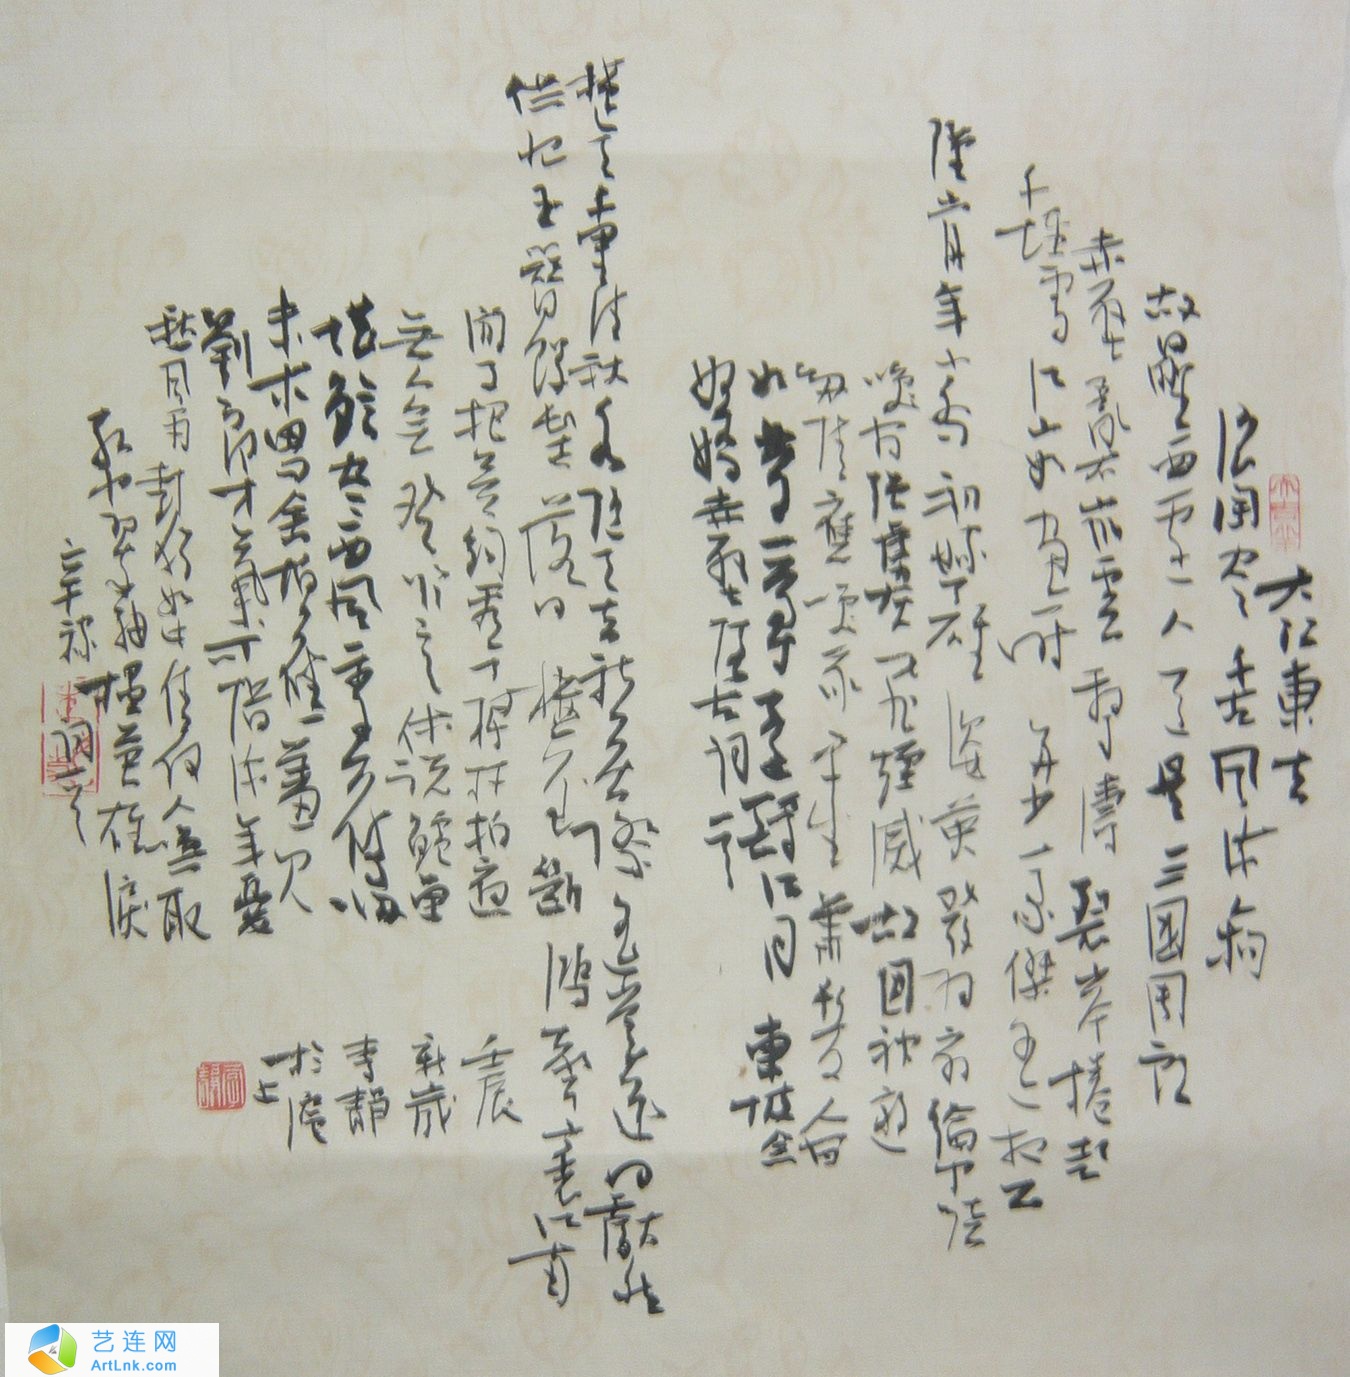 大江東去
浪淘盡千古風流人物
故壘西邊人道是三國周郎
赤壁亂石崩雲驚濤裂岸捲起
千堆雪江山如畫一時多少豪傑遙想公
瑾當年小喬初嫁了雄姿英發羽扇綸巾談
笑間檣櫓灰飛煙滅故國神遊
多情應笑我早生華髮人間
如夢一尊還酹江月東坡念
奴嬌赤壁懷古詞一首
楚天千里清秋水隨天去秋無際遙岑遠目獻愁
供恨玉簪螺髻落日樓頭斷鴻聲裏江南
遊子把吳鉤看了欄杆拍遍
無人會登臨意休說鱸魚
堪鱠盡西風季鷹歸
未求田問舍怕應羞見
劉郎才氣可惜流年憂
愁風雨樹猶如此倩何人喚取
紅巾翠袖搵英雄淚
辛稼軒詞一首
壬辰
新歲
李靜
於滬
上
艺连网
ArtLnk.com